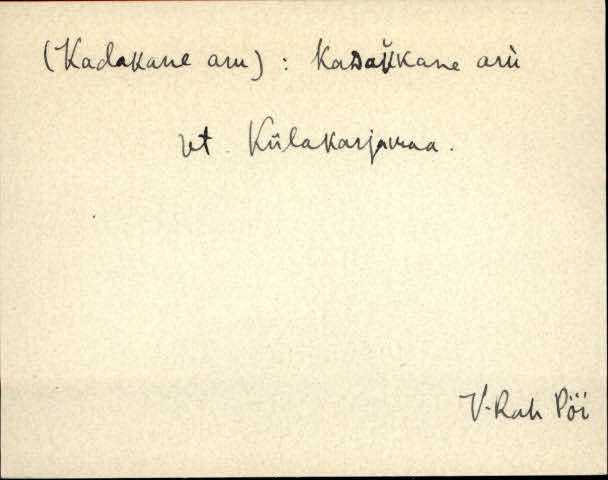 (Kadakane aru) : kaᴅak̆kane arù
vt. Külakarjamaa.
V-Rah Pöi